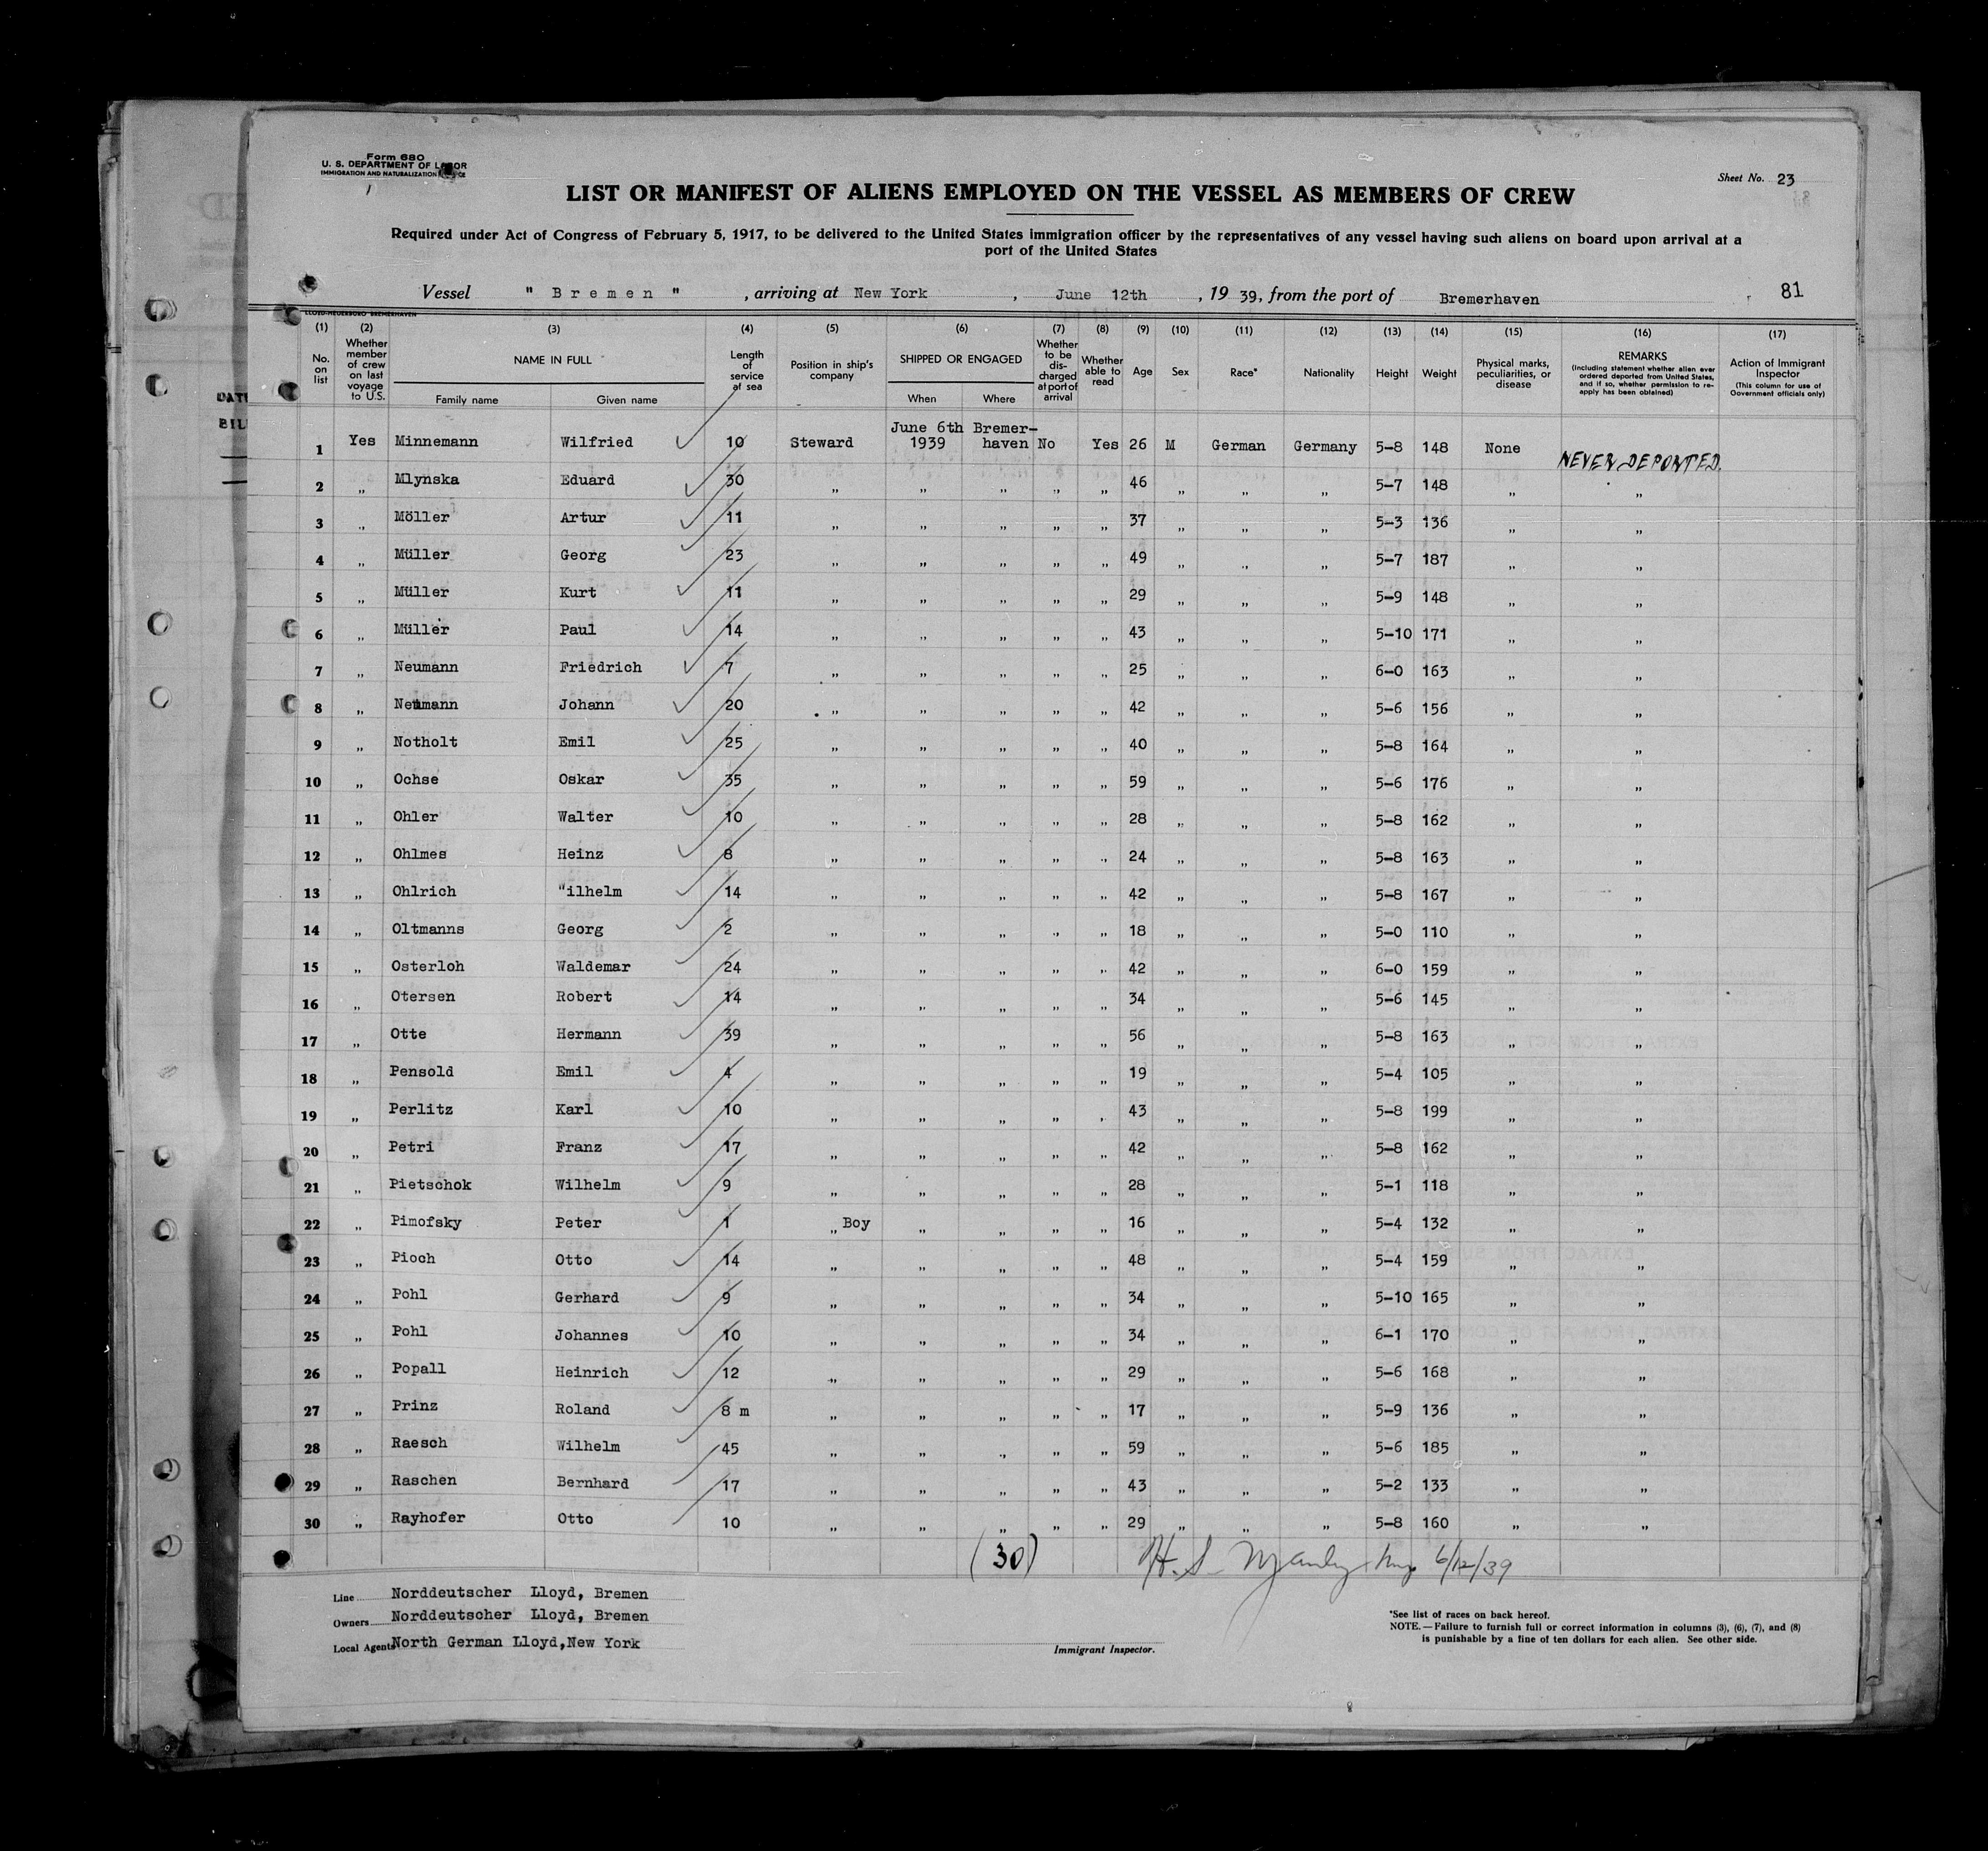 Form 680
U. S. DEPARTMENT OF LABOR
IMMIGRATION AND NATURALIZATION
Sheet No. 23
LIST OR MANIFEST OF ALIENS EMPLOYED ON THE VESSEL AS MEMBERS OF CREW
Required under Act of Congress of February 5, 1917, to be delivered to the United States immigration officer by the representatives of any vessel having such aliens on board upon arrival at a
port of the United States
Vessel " Bremen ", arriving at New York, June 12th, 19 39, from the port of Bremerhaven 81
(1) (2) (3) (4) (5) (6) (7) (8) (9) (10) (11) (12) (13) (14) (15) (16) (17)
No. on list
Whether member of crew on last voyage to U.S.
NAME IN FULL
Family name Given name
Length of service at sea
Position in ship's company
SHIPPED OR ENGAGED
When Where
Whether to be discharged at port of arrival
Whether able to read
Age
Sex
Race*
Nationality
Height
Weight
Physical marks, peculiarities, or disease
REMARKS
(Including statement whether alien ever ordered deported from United States, and if so, whether permission to re-apply has been obtained)
Action of Immigrant Inspector
(This column for use of Government officials only)
1 Yes Minnemann Wilfried 10 Steward June 6th 1939 Bremerhaven No Yes 26 M German Germany 5-8 148 None NEVER DEPORTED.
2 „ Mlynska Eduard 30 „ „ „ „ „ 46 „ „ „ 5-7 148 „ „
3 „ Möller Artur 11 „ „ „ „ „ 37 „ „ „ 5-3 136 „ „
4 „ Müller Georg 23 „ „ „ „ „ 49 „ „ „ 5-7 187 „ „
5 „ Müller Kurt 11 „ „ „ „ „ 29 „ „ „ 5-9 148 „ „
6 „ Müller Paul 14 „ „ „ „ „ 43 „ „ „ 5-10 171 „ „
7 „ Neumann Friedrich 7 „ „ „ „ „ 25 „ „ „ 6-0 163 „ „
8 „ Neumann Johann 20 „ „ „ „ „ 42 „ „ „ 5-6 156 „ „
9 „ Notholt Emil 25 „ „ „ „ „ 40 „ „ „ 5-8 164 „ „
10 „ Ochse Oskar 35 „ „ „ „ „ 59 „ „ „ 5-6 176 „ „
11 „ Ohler Walter 10 „ „ „ „ „ 28 „ „ „ 5-8 162 „ „
12 „ Ohlmes Heinz 8 „ „ „ „ „ 24 „ „ „ 5-8 163 „ „
13 „ Ohlrich "ilhelm 14 „ „ „ „ „ 42 „ „ „ 5-8 167 „ „
14 „ Oltmanns Georg 2 „ „ „ „ „ 18 „ „ „ 5-0 110 „ „
15 „ Osterloh Waldemar 24 „ „ „ „ „ 42 „ „ „ 6-0 159 „ „
16 „ Otersen Robert 14 „ „ „ „ „ 34 „ „ „ 5-6 145 „ „
17 „ Otte Hermann 39 „ „ „ „ „ 56 „ „ „ 5-8 163 „ „
18 „ Pensold Emil 4 „ „ „ „ „ 19 „ „ „ 5-4 105 „ „
19 „ Perlitz Karl 10 „ „ „ „ „ 43 „ „ „ 5-8 199 „ „
20 „ Petri Franz 17 „ „ „ „ „ 42 „ „ „ 5-8 162 „ „
21 „ Pietschok Wilhelm 9 „ „ „ „ „ 28 „ „ „ 5-1 118 „ „
22 „ Pimofsky Peter 1 „ Boy „ „ „ „ 16 „ „ „ 5-4 132 „ „
23 „ Pioch Otto 14 „ „ „ „ „ 48 „ „ „ 5-4 159 „ „
24 „ Pohl Gerhard 9 „ „ „ „ „ 34 „ „ „ 5-10 165 „ „
25 „ Pohl Johannes 10 „ „ „ „ „ 34 „ „ „ 6-1 170 „ „
26 „ Popall Heinrich 12 „ „ „ „ „ 29 „ „ „ 5-6 168 „ „
27 „ Prinz Roland 8 m „ „ „ „ „ 17 „ „ „ 5-9 136 „ „
28 „ Raesch Wilhelm 45 „ „ „ „ „ 59 „ „ „ 5-6 185 „ „
29 „ Raschen Bernhard 17 „ „ „ „ „ 43 „ „ „ 5-2 133 „ „
30 „ Rayhofer Otto 10 „ „ „ „ „ 29 „ „ „ 5-8 160 „ „
(30) H. S. 6/12/39
Line Norddeutscher Lloyd, Bremen
Owners Norddeutscher Lloyd, Bremen
Local Agents North German Lloyd, New York
Immigrant Inspector.
*See list of races on back hereof.
NOTE.—Failure to furnish full or correct information in columns (3), (6), (7), and (8)
is punishable by a fine of ten dollars for each alien. See other side.